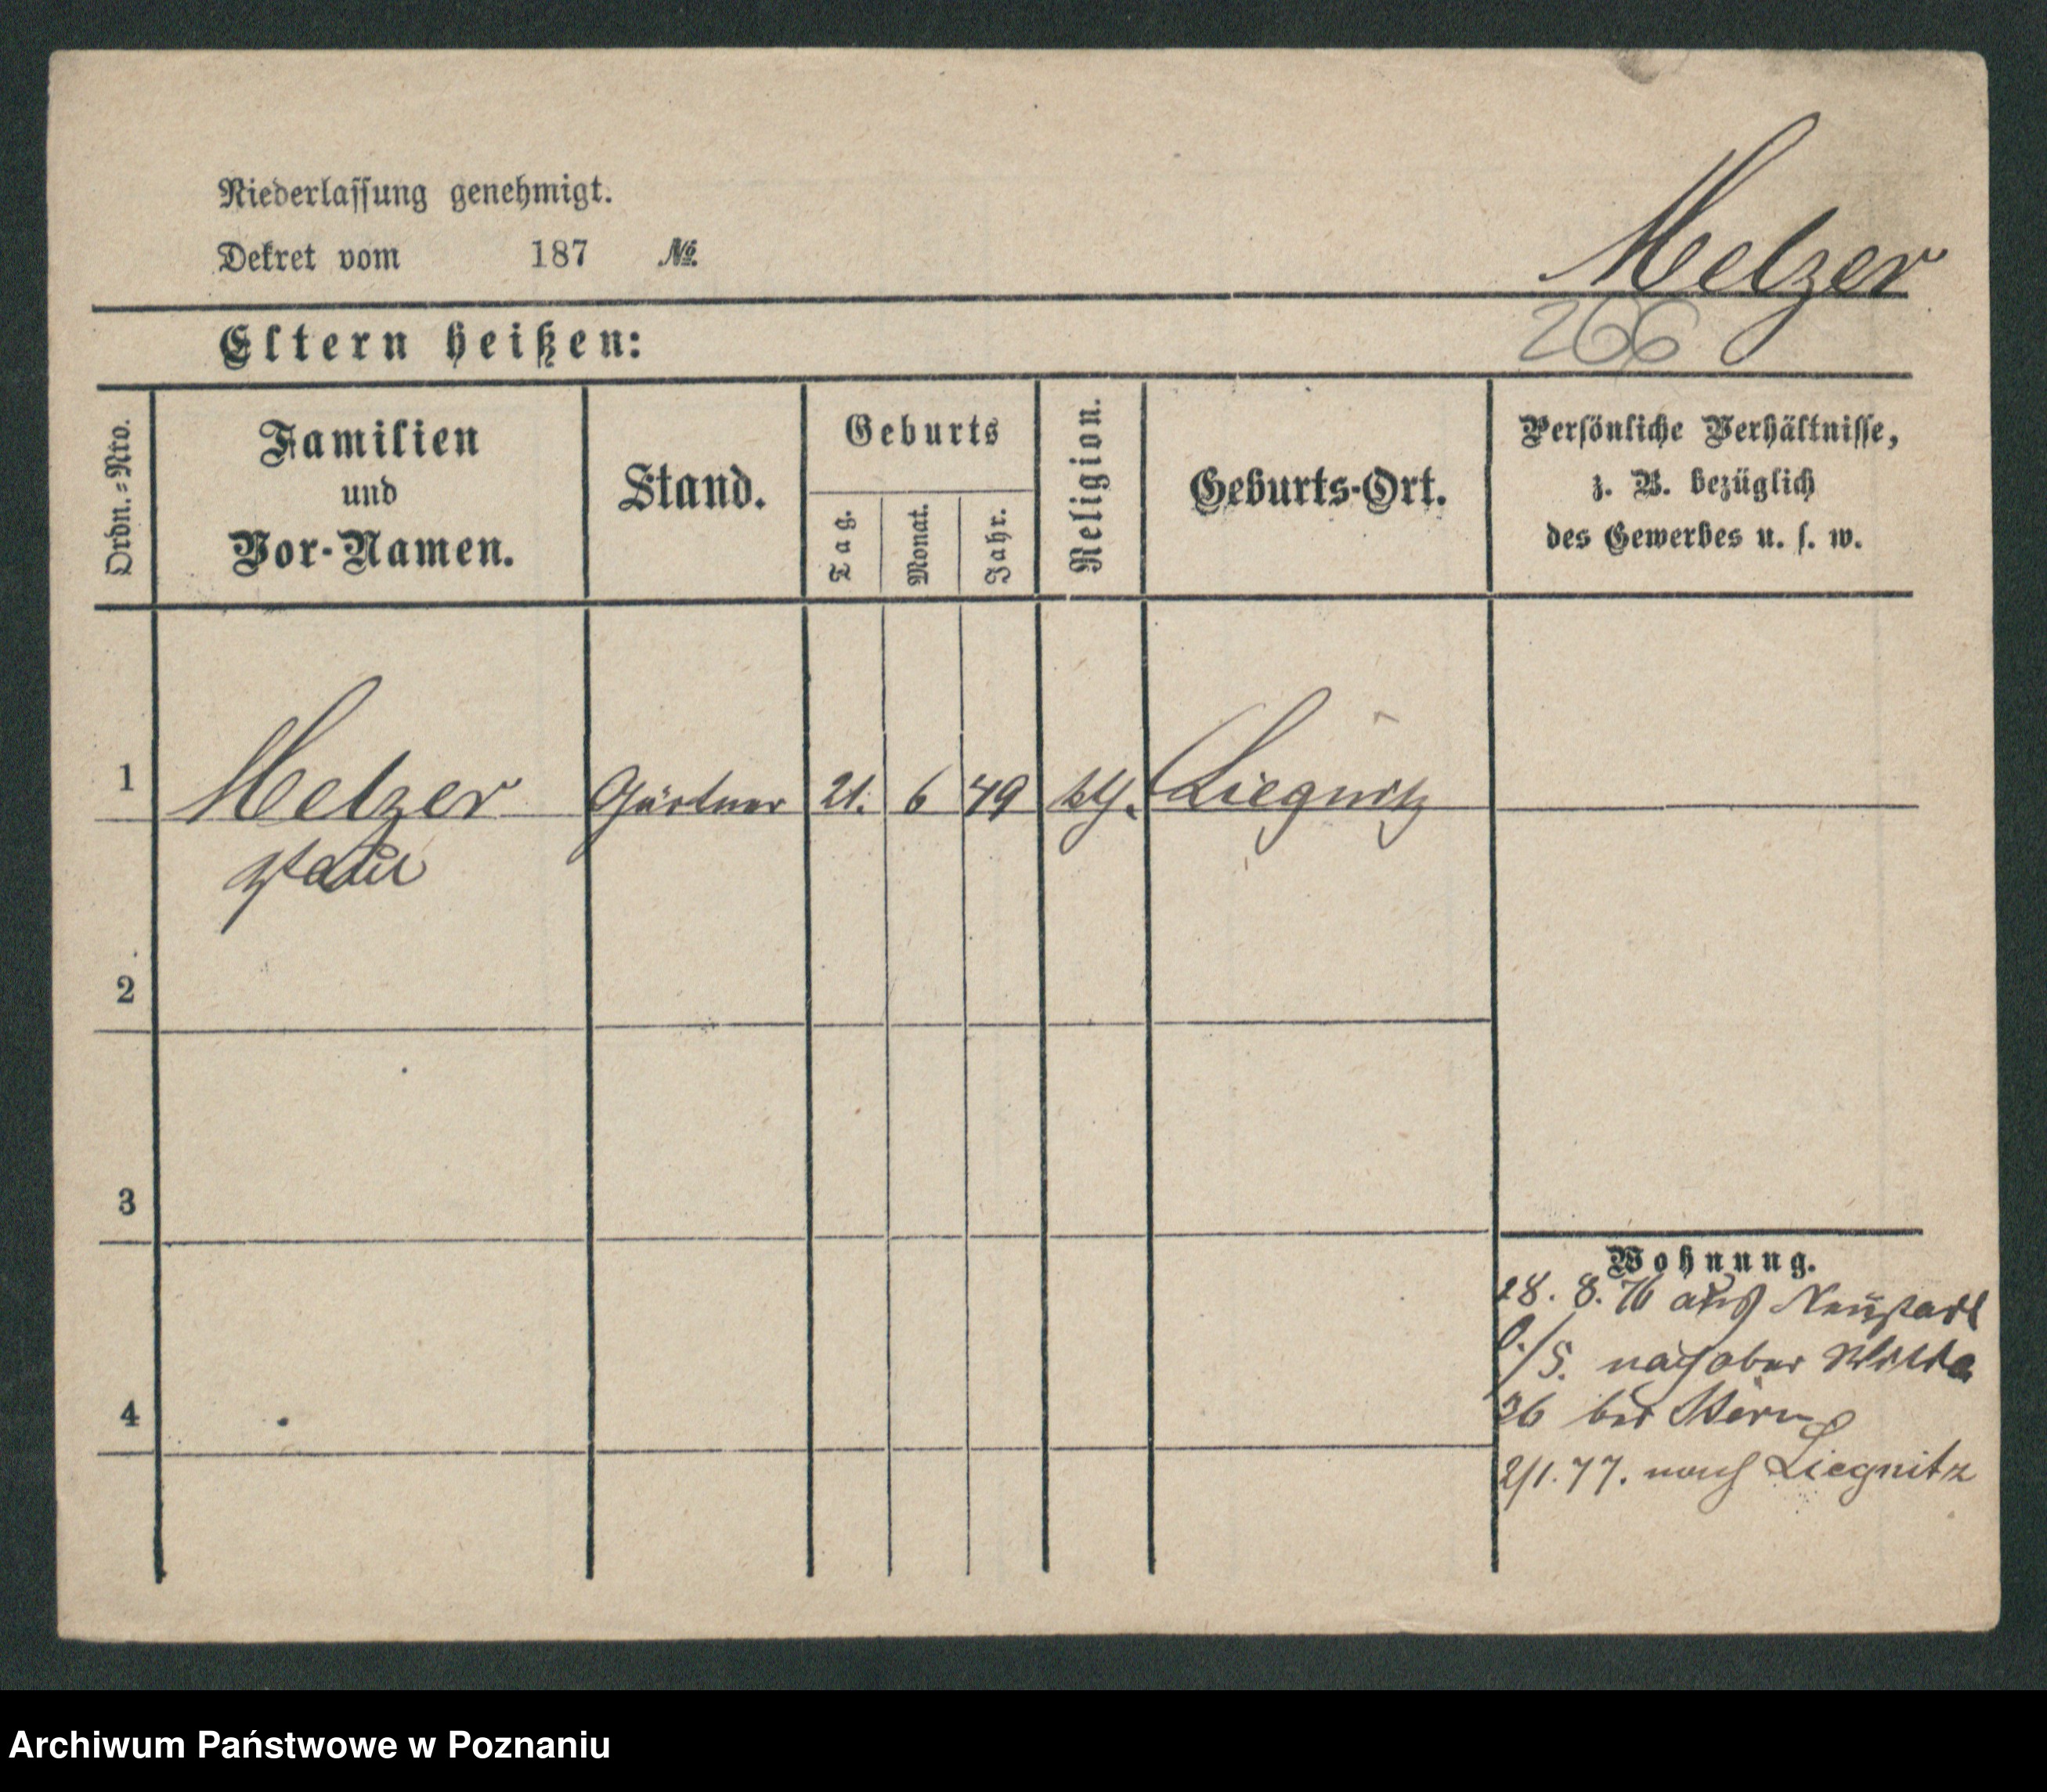 Niederlassung genehmigt.
Dekret vom 187 №
Melzer
266
Eltern heißen:
Ordn.-Nro.
Familien
und
Vor-Namen.
Stand.
Geburts
Tag.
Monat.
Jahr.
Religion.
Geburts-Ort.
Persönliche Verhältnisse,
z. B. bezüglich
des Gewerbes u. s. w.
1 Melzer Gärtner 21. 6 49 Liegnitz
Paul
2
3
4
Wohnung.
28. 8. 76 aus Neustadt
O./S. nach ober Wilda
36 bei
2/1. 77. nach Liegnitz
Archiwum Państwowe w Poznaniu